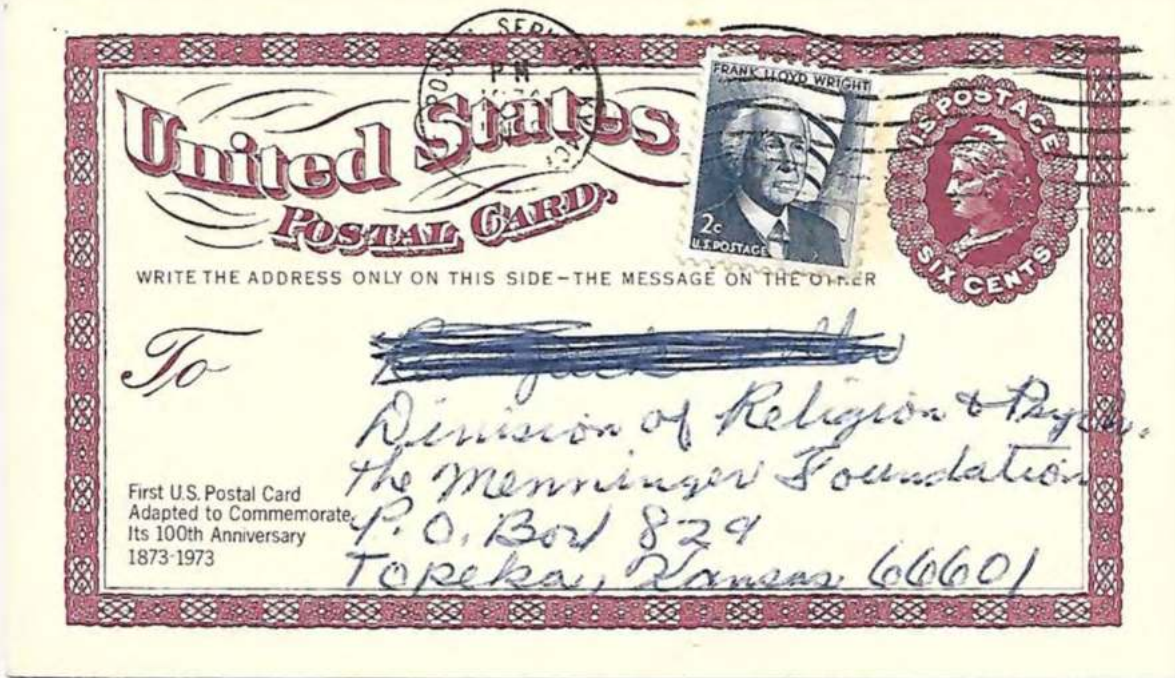 POSTAL SERVICE
PM
FRANK LLOYD WRIGHT
2c
U.S. POSTAGE
U.S. POSTAGE
SIX CENTS
United States
POSTAL CARD,
WRITE THE ADDRESS ONLY ON THIS SIDE–THE MESSAGE ON THE OTHER
To
Division of Religion & Psych.
the Menninger Foundation
P.O. Box 829
Topeka, Kansas 66601
First U.S. Postal Card
Adapted to Commemorate
Its 100th Anniversary
1873-1973